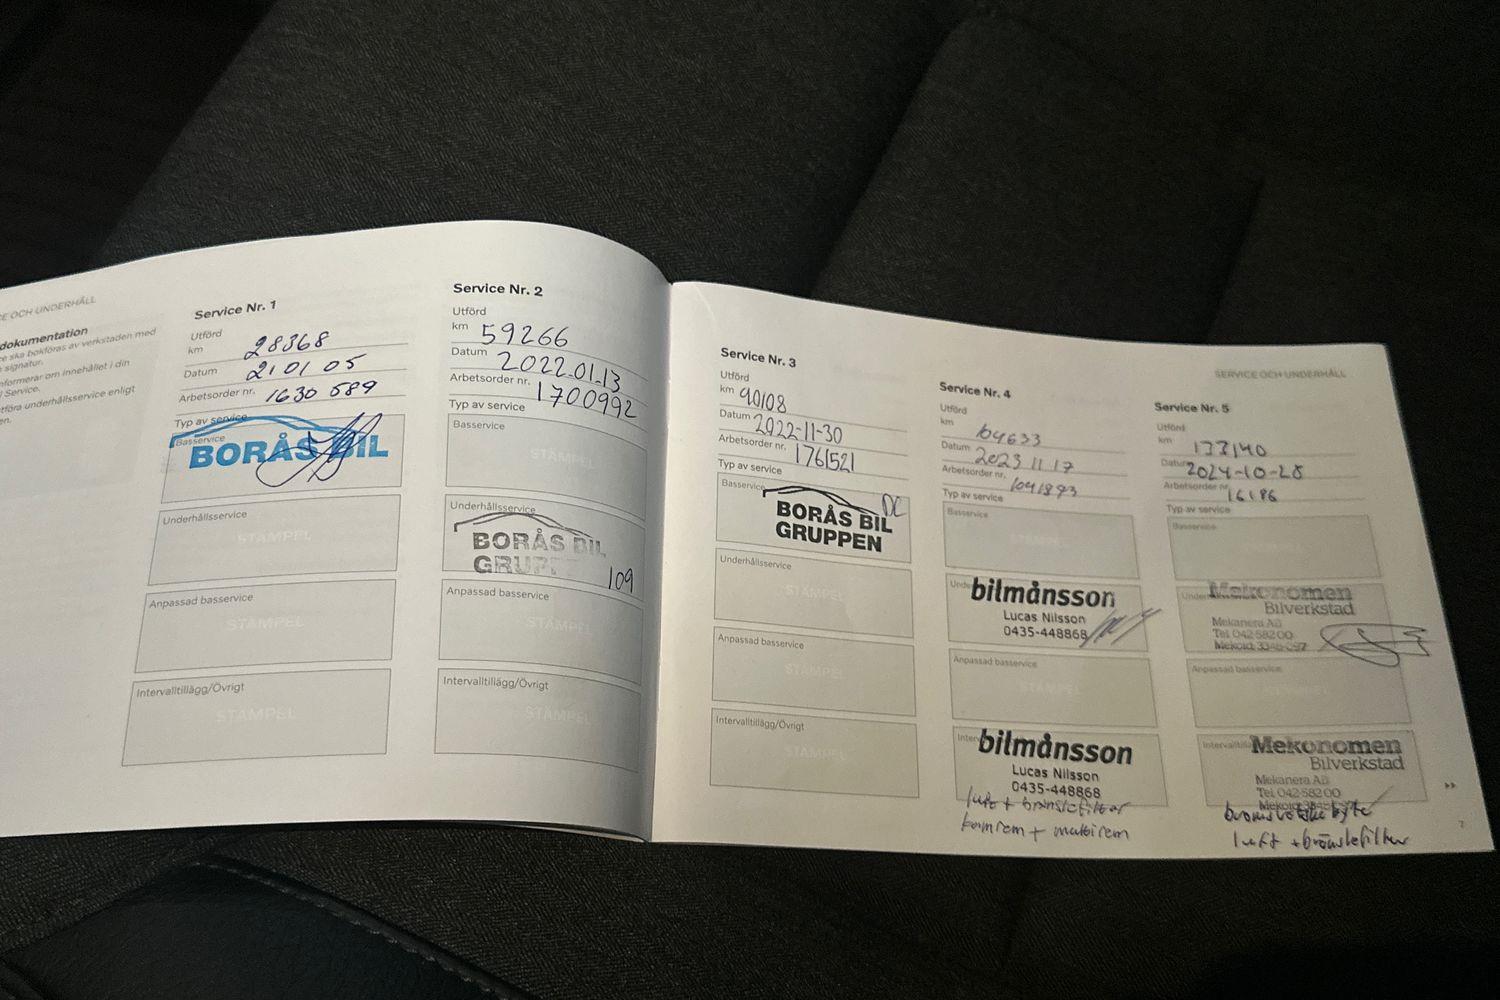 E OCH UNDERHÅLL
dokumentation
ce ska bokföras av verkstaden med
signatur.
nformerar om innehållet i din
Service.
tföra underhållsservice enligt
en.
Service Nr. 1
Utförd
km 28368
Datum 21 01 05
Arbetsorder nr. 1630 589
Typ av service
Basservice
BORÅS BIL
Underhållsservice
STÄMPEL
Anpassad basservice
STÄMPEL
Intervalltillägg/Övrigt
STÄMPEL
Service Nr. 2
Utförd
km 59266
Datum 2022.01.13
Arbetsorder nr. 1700992
Typ av service
Basservice
STÄMPEL
Underhållsservice
BORÅS BIL
GRUPP
109
Anpassad basservice
STÄMPEL
Intervalltillägg/Övrigt
STÄMPEL
SERVICE OCH UNDERHÅLL
Service Nr. 3
Utförd
km 90108
Datum 2022-11-30
Arbetsorder nr. 1761521
Typ av service
Basservice
DC
BORÅS BIL
GRUPPEN
Underhållsservice
STÄMPEL
Anpassad basservice
STÄMPEL
Intervalltillägg/Övrigt
STÄMPEL
Service Nr. 4
Utförd
km 104633
Datum 2023 11 17
Arbetsorder nr.
Typ av service
Basservice
STÄMPEL
Unde
bilmånsson
Lucas Nilsson
0435-448868
Anpassad basservice
STÄMPEL
Inter
bilmånsson
Lucas Nilsson
0435-448868
luft + bränslefilter
kamrem + multirem
Service Nr. 5
Utförd
km 133140
Datum 2024-10-28
Arbetsorder nr. 16186
Typ av service
Basservice
STÄMPEL
Under
Mekonomen
Bilverkstad
Mekanera AB
Tel 042-582 00
Anpassad basservice
STÄMPEL
Intervalltill
Mekonomen
Bilverkstad
Mekanera AB
Tel 042-582 00
bromsvätske byte
luft + bränslefilter
7